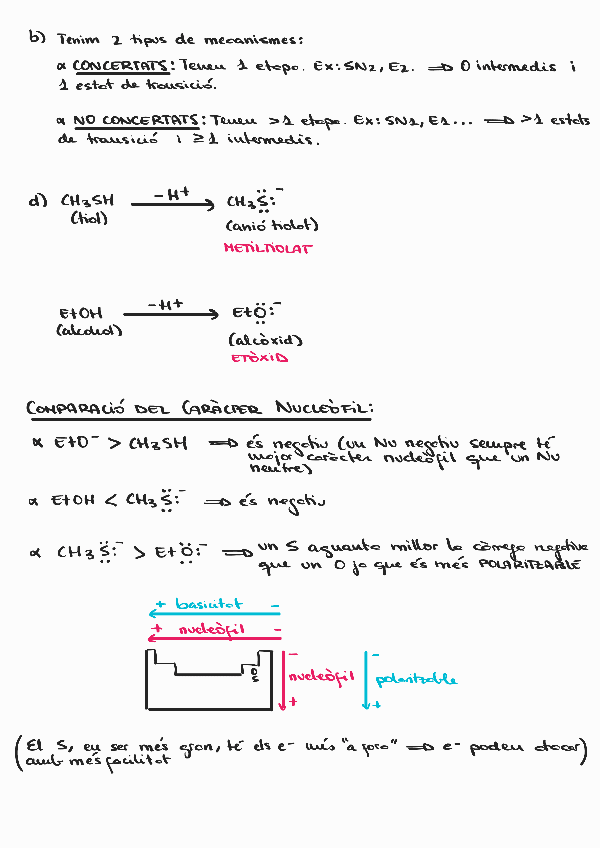 b) Tenim 2 tipus de mecanismes:
α CONCERTATS: Tenen 1 etapa. Ex: SN2, E2. ⇒ 0 intermedis i
1 estat de transició.
α NO CONCERTATS: Tenen >1 etapa. Ex: SN1, E1... ⇒ >1 estats
de transició i ≥1 intermedis.
d) CH3SH —H+ → CH3S:-
(tiol) (anió tiolat)
METILTIOLAT
EtOH —H+ → EtO:-
(alcohol) (alcòxid)
ETÒXID
COMPARACIÓ DEL CARÀCTER NUCLEÒFIL:
α EtO- > CH3SH ⇒ és negatiu (un Nu negatiu sempre té
major caràcter nucleòfil que un Nu
neutre)
α EtOH < CH3S:- ⇒ és negatiu
α CH3S:- > EtO:- ⇒ un S aguanta millor la càrrega negativa
que un O ja que és més POLARITZABLE
+ basicitat -
+ nucleòfil -
O
S
- nucleòfil +
- polaritzable +
(El S, en ser més gran, té els e- més "a fora" ⇒ e- poden atacar)
amb més facilitat